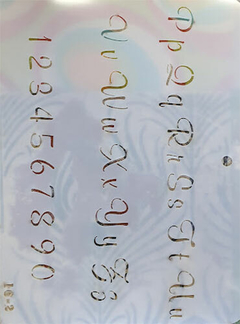 Pp Qq Rr Ss Tt Uu
Vv Ww Xx Yy Zz
1 2 3 4 5 6 7 8 9 0
16-2